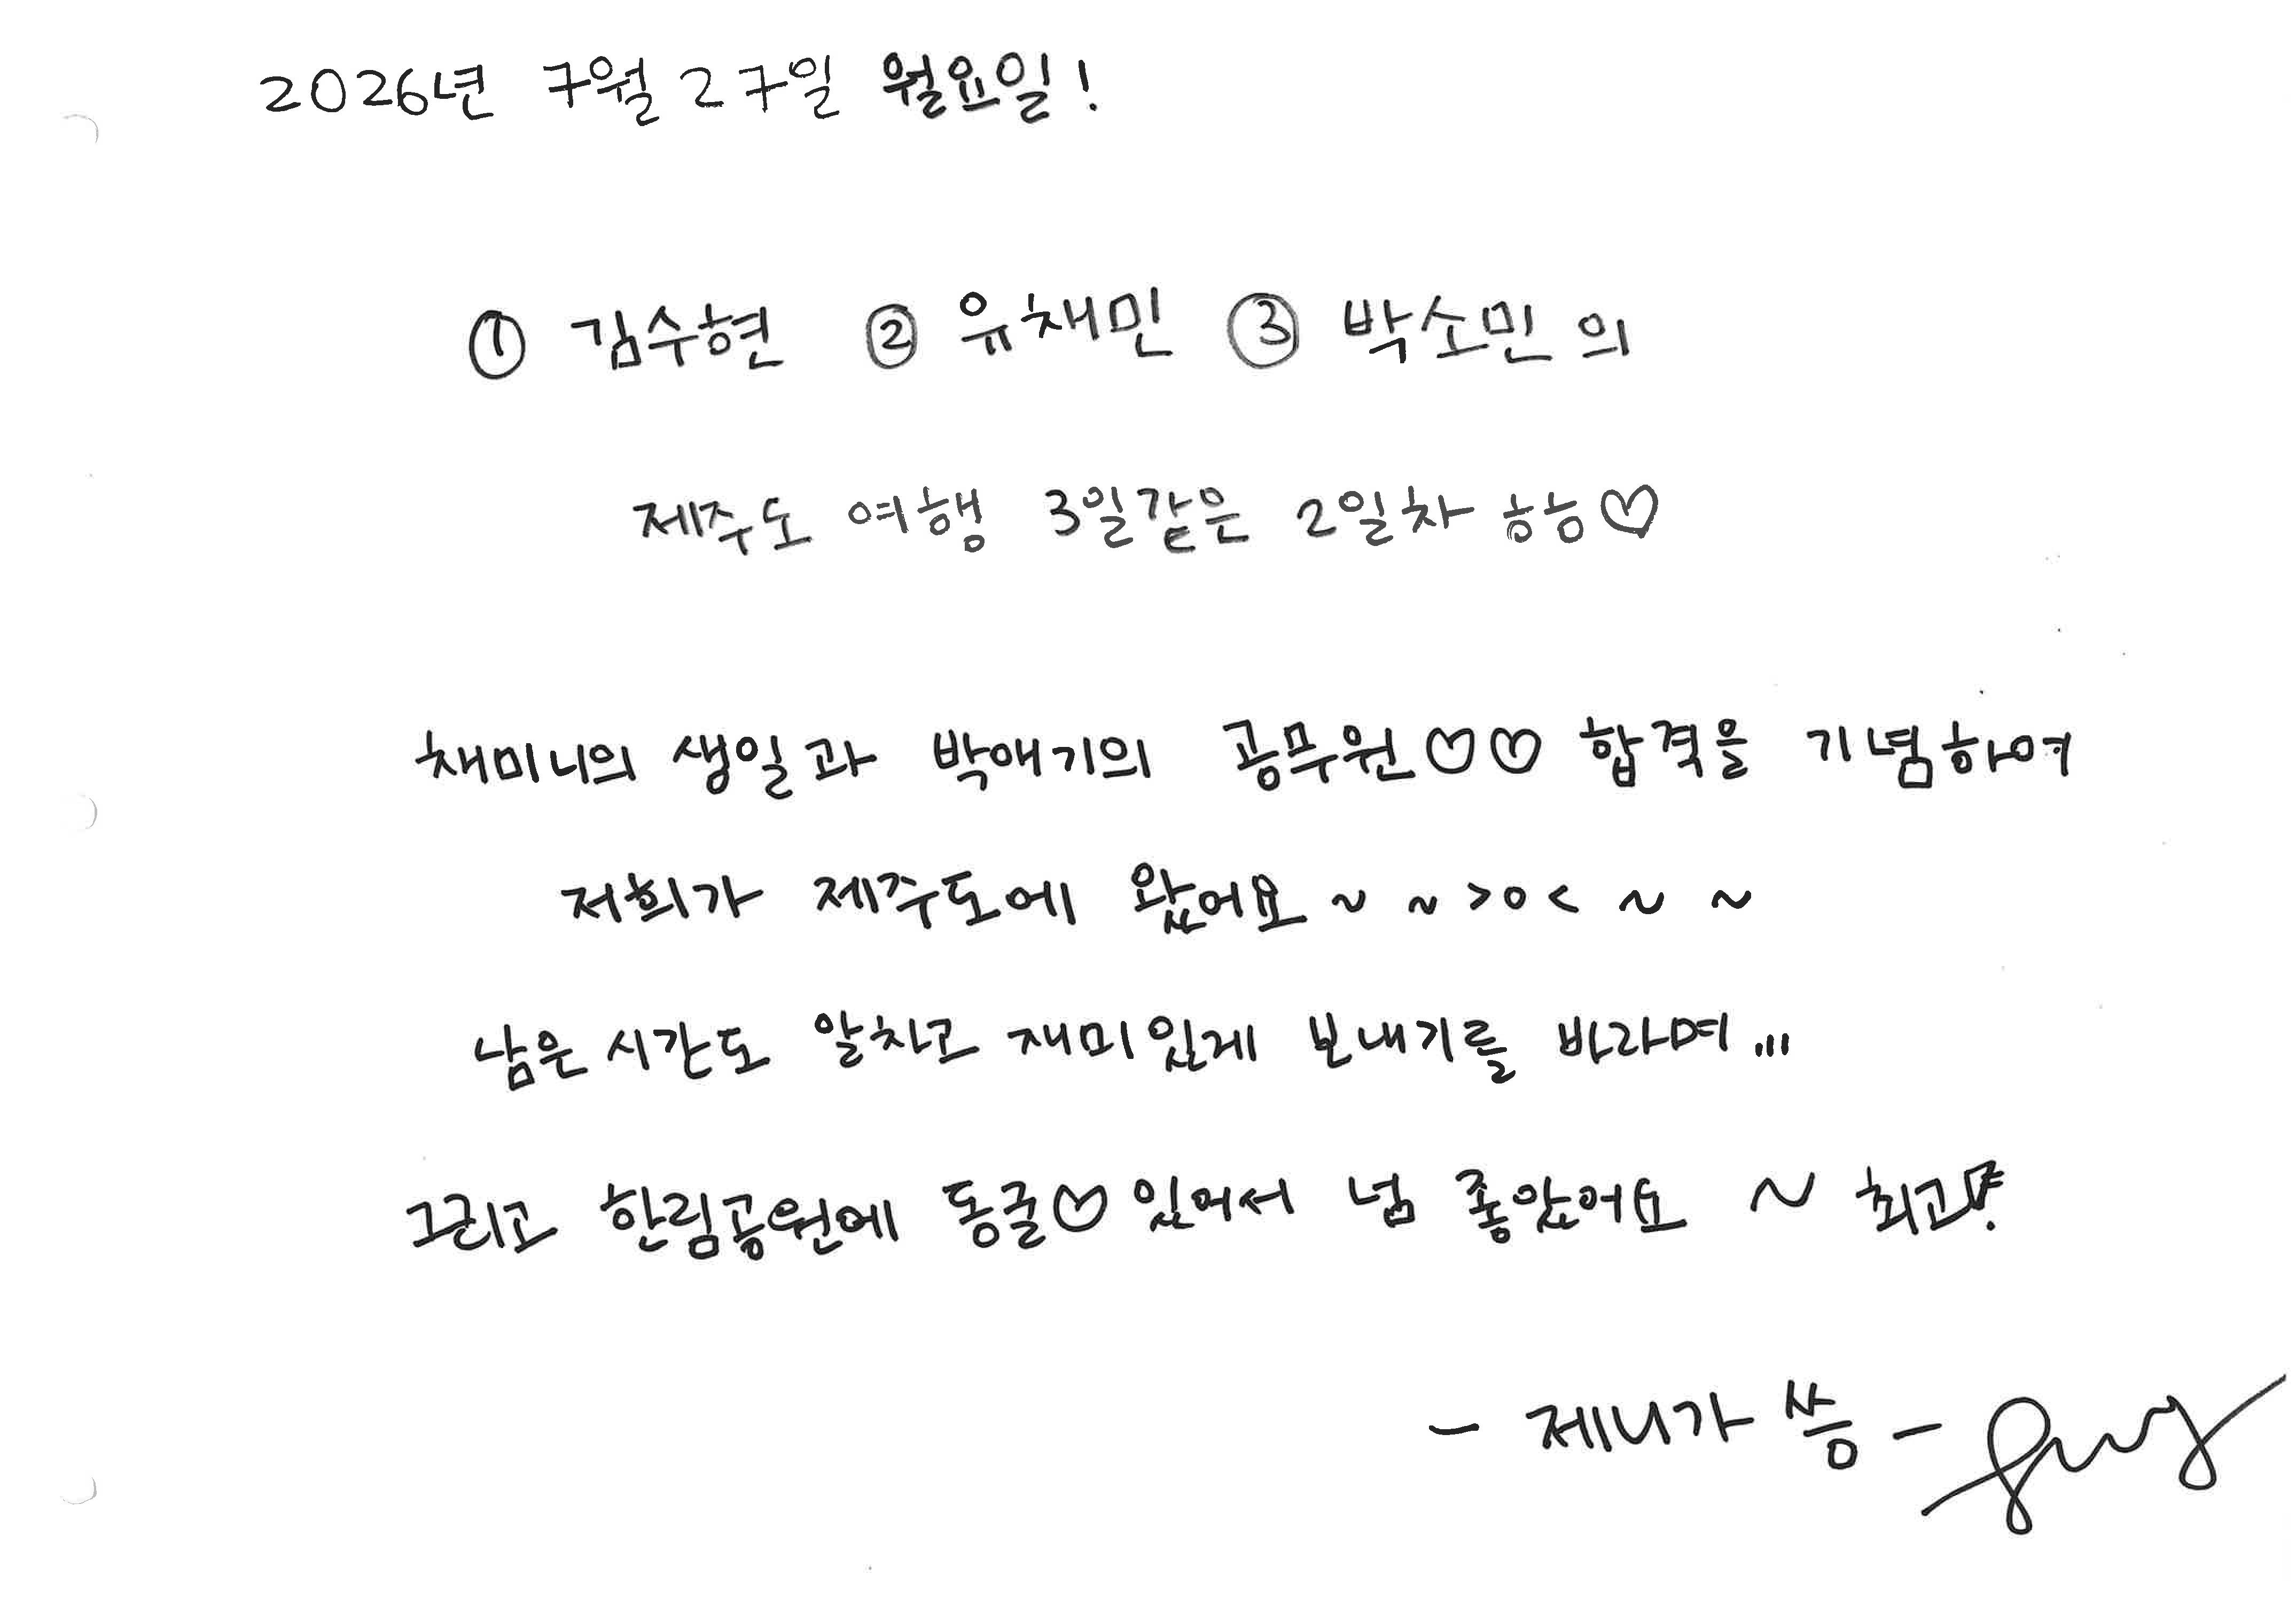 2026년 7월 27일 월요일!
① 김수현 ② 유채민 ③ 박소민의
제주도 여행 3일같은 2일차 흐흐♡
채미니의 생일과 박애기의 공무원♡♡ 합격을 기념하여
저희가 제주도에 왔어요~~>o<~~
남은 시간도 알차고 재미있게 보내기를 바라며...
그리고 한림공원에 동굴♡있어서 넘 좋았어요~ 최고!
- 제니가 씀 -